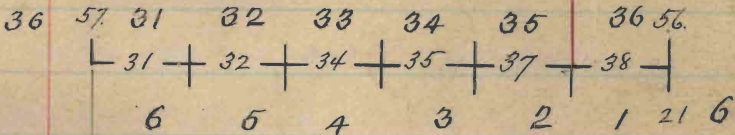 36 57. 31 32 33 34 35 36 56.
31 32 34 35 37 38
6 5 4 3 2 1 21 6